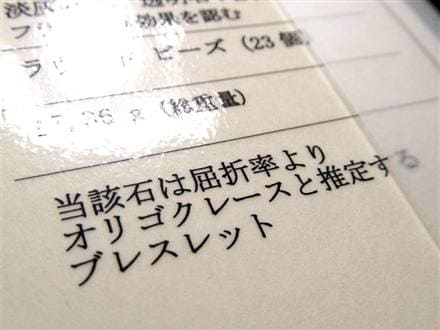 効果を認む
ビーズ (23 個)
g (総重量)
当該石は屈折率より
オリゴクレースと推定する
ブレスレット